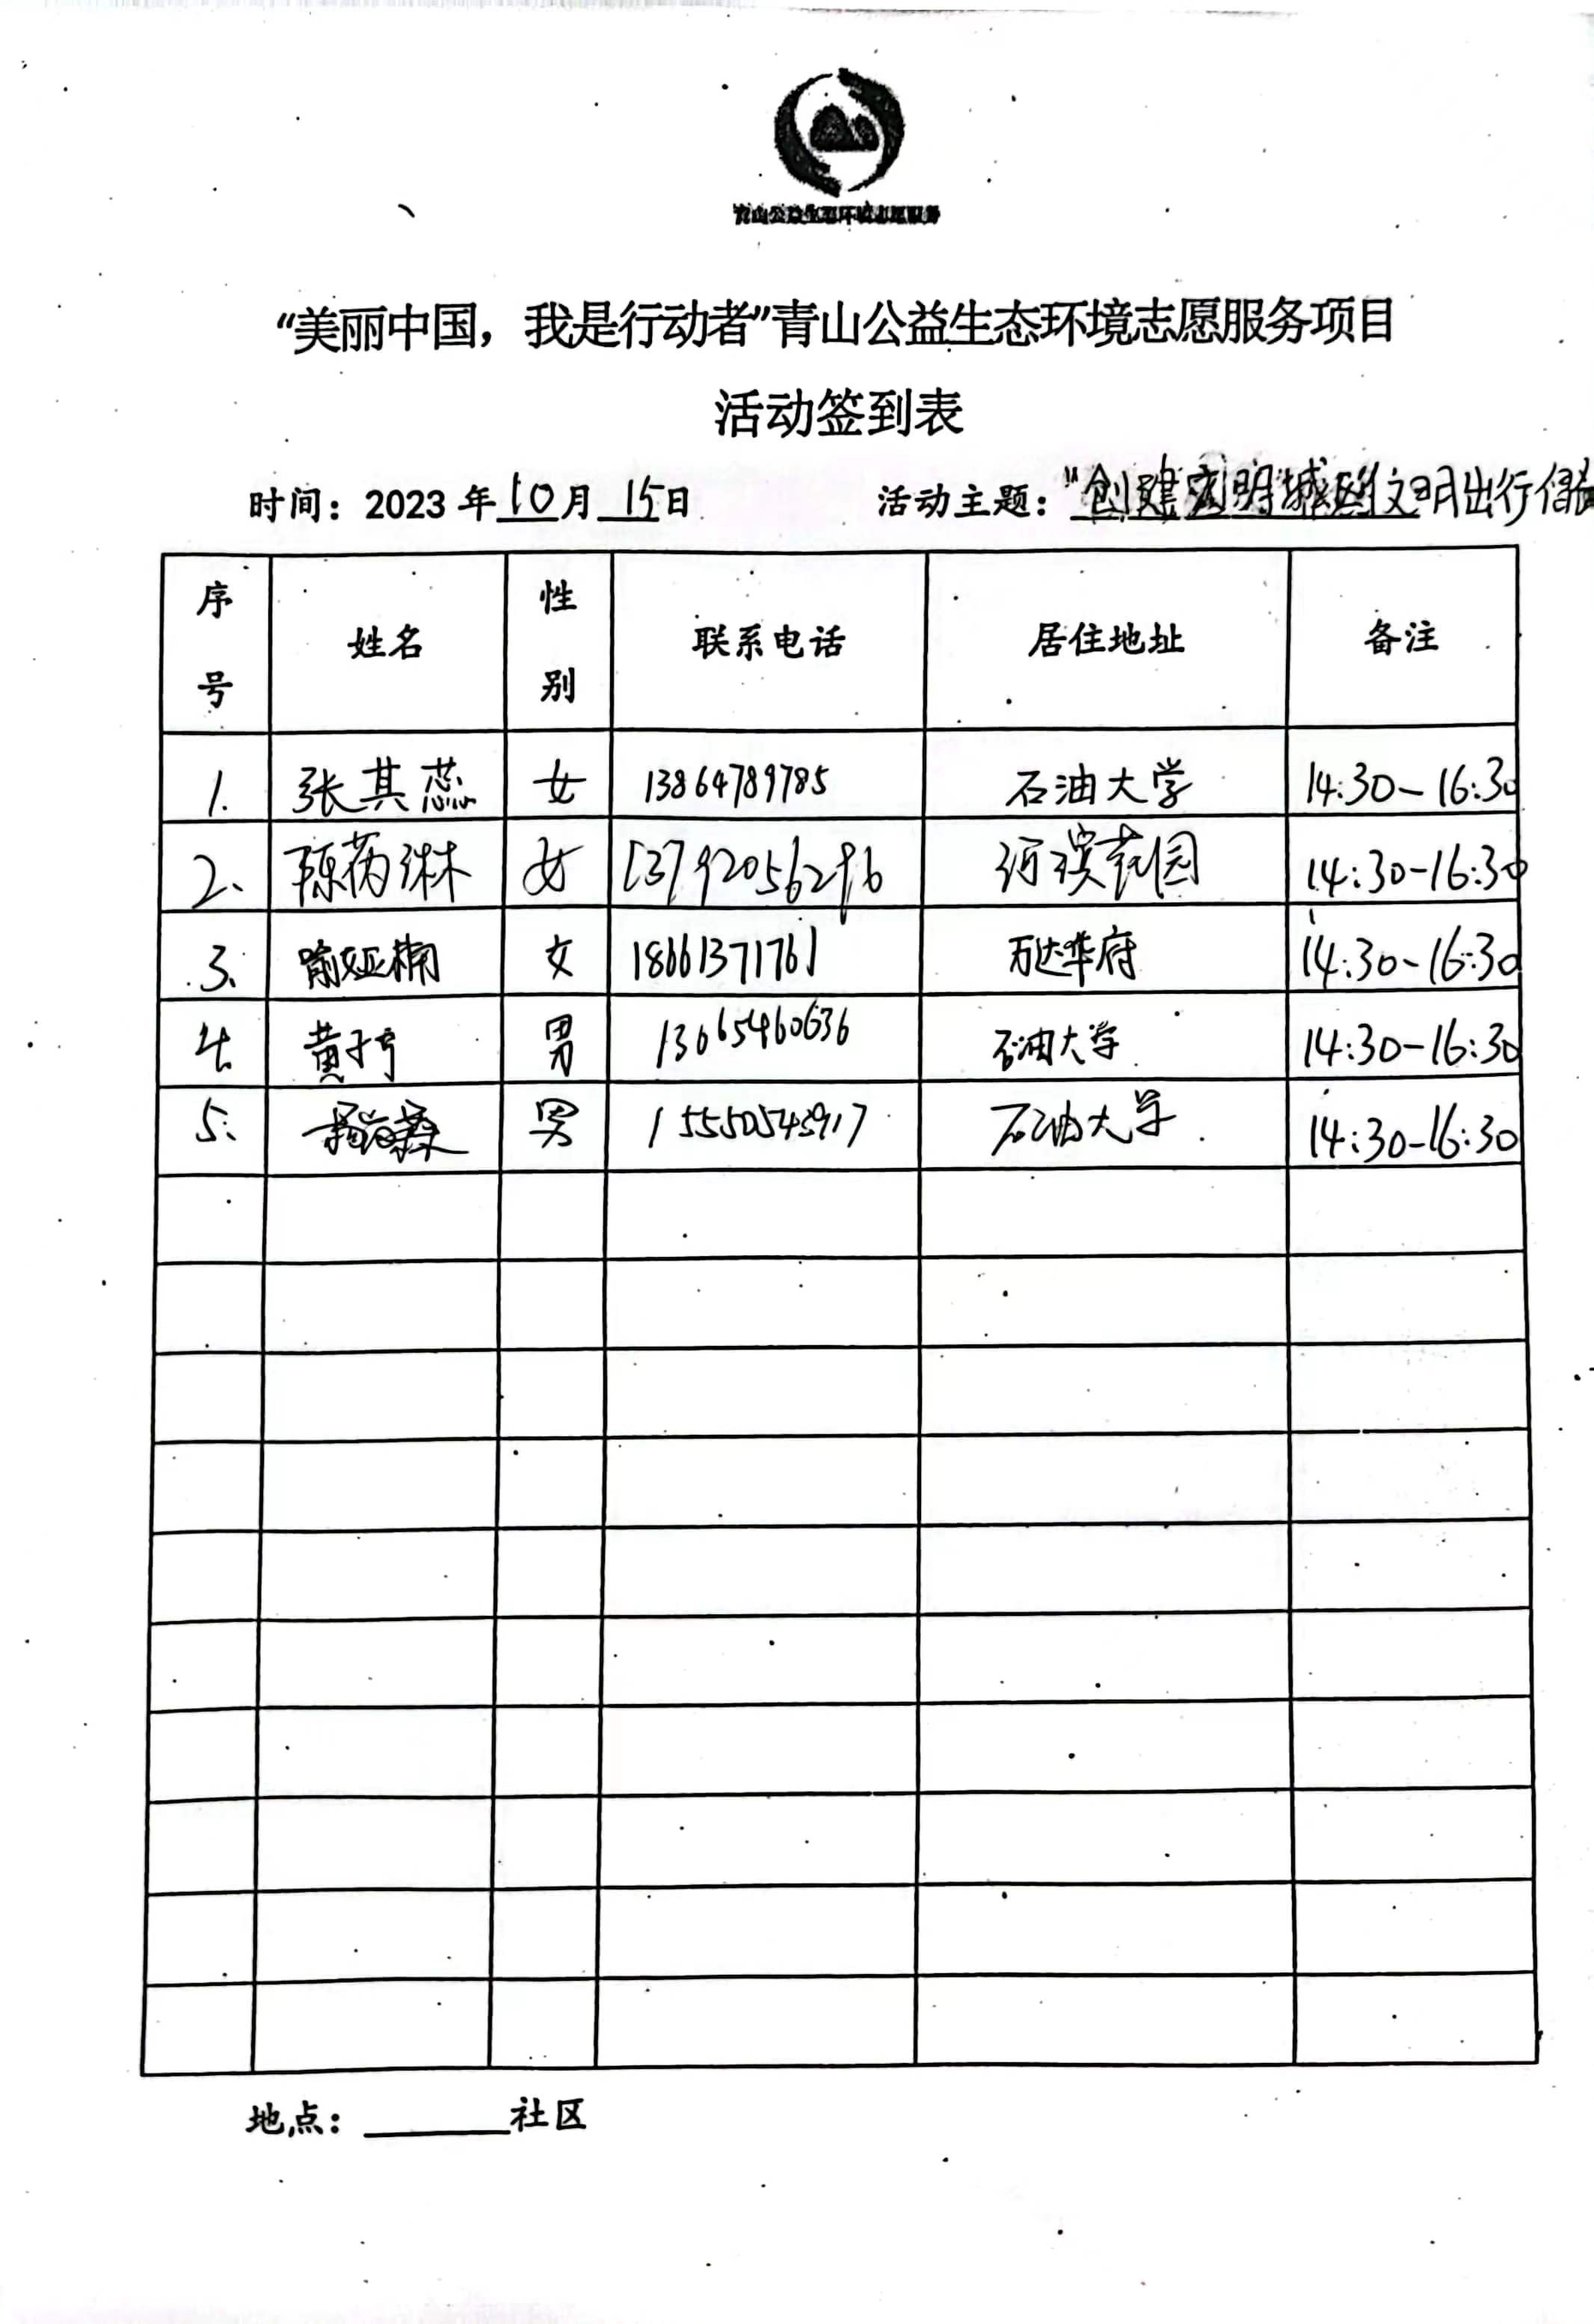 青山公益生态环境志愿服务
“美丽中国，我是行动者”青山公益生态环境志愿服务项目
活动签到表
时间：2023年10月15日 活动主题：“创建文明城区”文明出行
序号 姓名 性别 联系电话 居住地址 备注
1. 张其蕊 女 13864789785 石油大学 14:30-16:30
2. 女 13792056296 河滨花园 14:30-16:30
3. 喻娅楠 女 18661371761 万达华府 14:30-16:30
4. 黄子 男 13665460636 石油大学 14:30-16:30
5. 男 15550545917 石油大学 14:30-16:30
地点：______社区